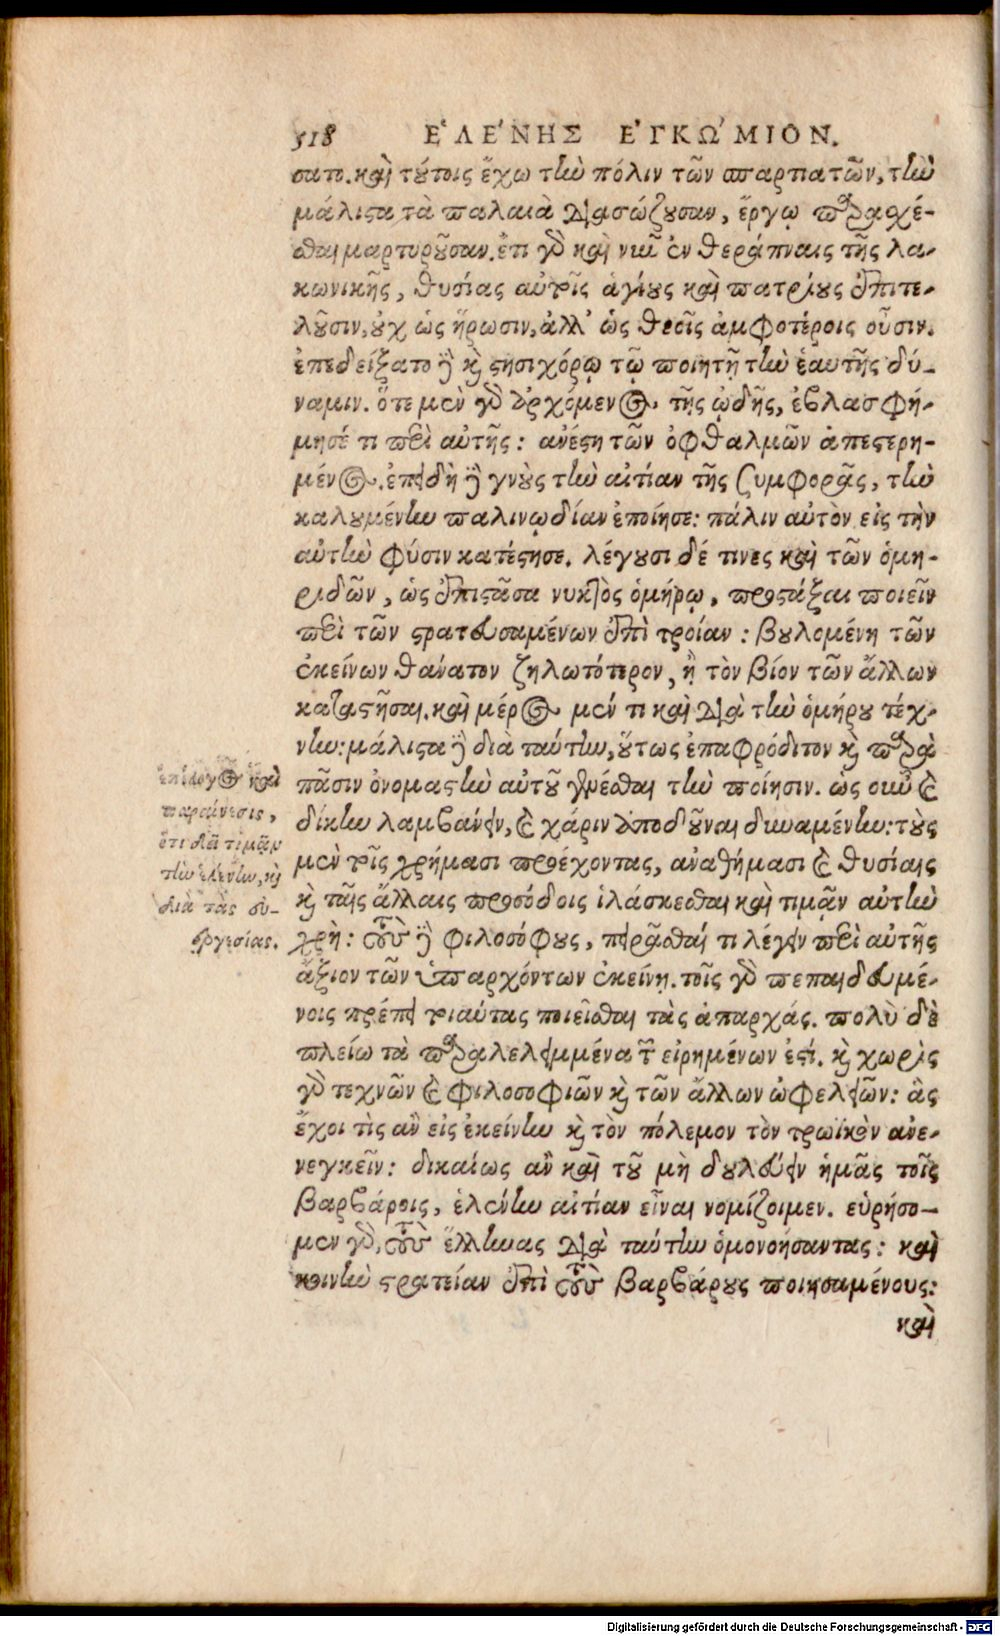 518 ΕʹΛΕʹΝΗΣ ΕʹΓΚΩʹΜΙΟΝ.
σατο. καὶ τούτοις ἔχω τὴν πόλιν τῶν σπαρτιατῶν, τὴν
μάλιστα τὰ παλαιὰ διασώζουσαν, ἔργῳ παρασχέ-
σθαι μαρτυροῦσαν. ἔτι γὰρ καὶ νῦν ἐν θεράπναις τῆς λα-
κωνικῆς, θυσίας αὐτοῖς ἁγίους καὶ πατρίους ἐπιτε-
λοῦσιν, οὐχ ὡς ἥρωσιν, ἀλλ' ὡς θεοῖς ἀμφοτέροις οὖσιν.
ἐπεδείξατο δὲ καὶ στησιχόρῳ τῷ ποιητῇ τὴν ἑαυτῆς δύ-
ναμιν. ὅτε μὲν γὰρ ἀρχόμενος τῆς ᾠδῆς, ἐβλασφή-
μησέ τι περὶ αὐτῆς: ἀνέστη τῶν ὀφθαλμῶν ἀπεστερη-
μένος. ἐπειδὴ δὲ γνοὺς τὴν αἰτίαν τῆς συμφορᾶς, τὴν
καλουμένην παλινῳδίαν ἐποίησε: πάλιν αὐτὸν εἰς τὴν
αὐτὴν φύσιν κατέστησε. λέγουσι δέ τινες καὶ τῶν ὁμη-
ριδῶν, ὡς ἐπιστᾶσα νυκτὸς ὁμήρῳ, προστάξαι ποιεῖν
περὶ τῶν στρατευσαμένων ἐπὶ τροίαν: βουλομένη τῶν
ἐκείνων θάνατον ζηλωτότερον, ἢ τὸν βίον τῶν ἄλλων
καταστῆσαι. καὶ μέρος μέν τι καὶ διὰ τὴν ὁμήρου τέχ-
νην: μάλιστα δὲ διὰ ταύτην, οὕτως ἐπαφρόδιτον καὶ παρὰ
πᾶσιν ὀνομαστὴν αὐτοῦ γενέσθαι τὴν ποίησιν. ὡς οὖν καὶ
δίκην λαμβάνειν, καὶ χάριν ἀποδοῦναι δυναμένην: τοὺς
μὲν τοῖς χρήμασι προέχοντας, ἀναθήμασι καὶ θυσίαις
καὶ ταῖς ἄλλαις προσόδοις ἱλάσκεσθαι καὶ τιμᾶν αὐτὴν
χρὴ: τοὺς δὲ φιλοσόφους, πειρᾶσθαί τι λέγειν περὶ αὐτῆς
ἄξιον τῶν ὑπαρχόντων ἐκείνῃ. τοῖς γὰρ πεπαιδευμέ-
νοις πρέπει τοιαύτας ποιεῖσθαι τὰς ἀπαρχάς. πολὺ δὲ
πλείω τὰ παραλελειμμένα τῶν εἰρημένων ἐστί. καὶ χωρὶς
γὰρ τεχνῶν καὶ φιλοσοφιῶν καὶ τῶν ἄλλων ὠφελειῶν: ἃς
ἔχοι τὶς ἂν εἰς ἐκείνην καὶ τὸν πόλεμον τὸν τρωϊκὸν ἀνε-
νεγκεῖν: δικαίως ἂν καὶ τοῦ μὴ δουλεύειν ἡμᾶς τοῖς
βαρβάροις, ἑλένην αἰτίαν εἶναι νομίζοιμεν. εὑρήσο-
μεν γὰρ, τοὺς ἕλληνας διὰ ταύτην ὁμονοήσαντας: καὶ
κοινὴν στρατείαν ἐπὶ τοὺς βαρβάρους ποιησαμένους:
καὶ
ἐπίλογος καὶ
παραίνεσις,
ὅτι δεῖ τιμᾶν
τὴν ἑλένην, καὶ
διὰ τὰς εὐ-
εργεσίας.
Digitalisierung gefördert durch die Deutsche Forschungsgemeinschaft - DFG